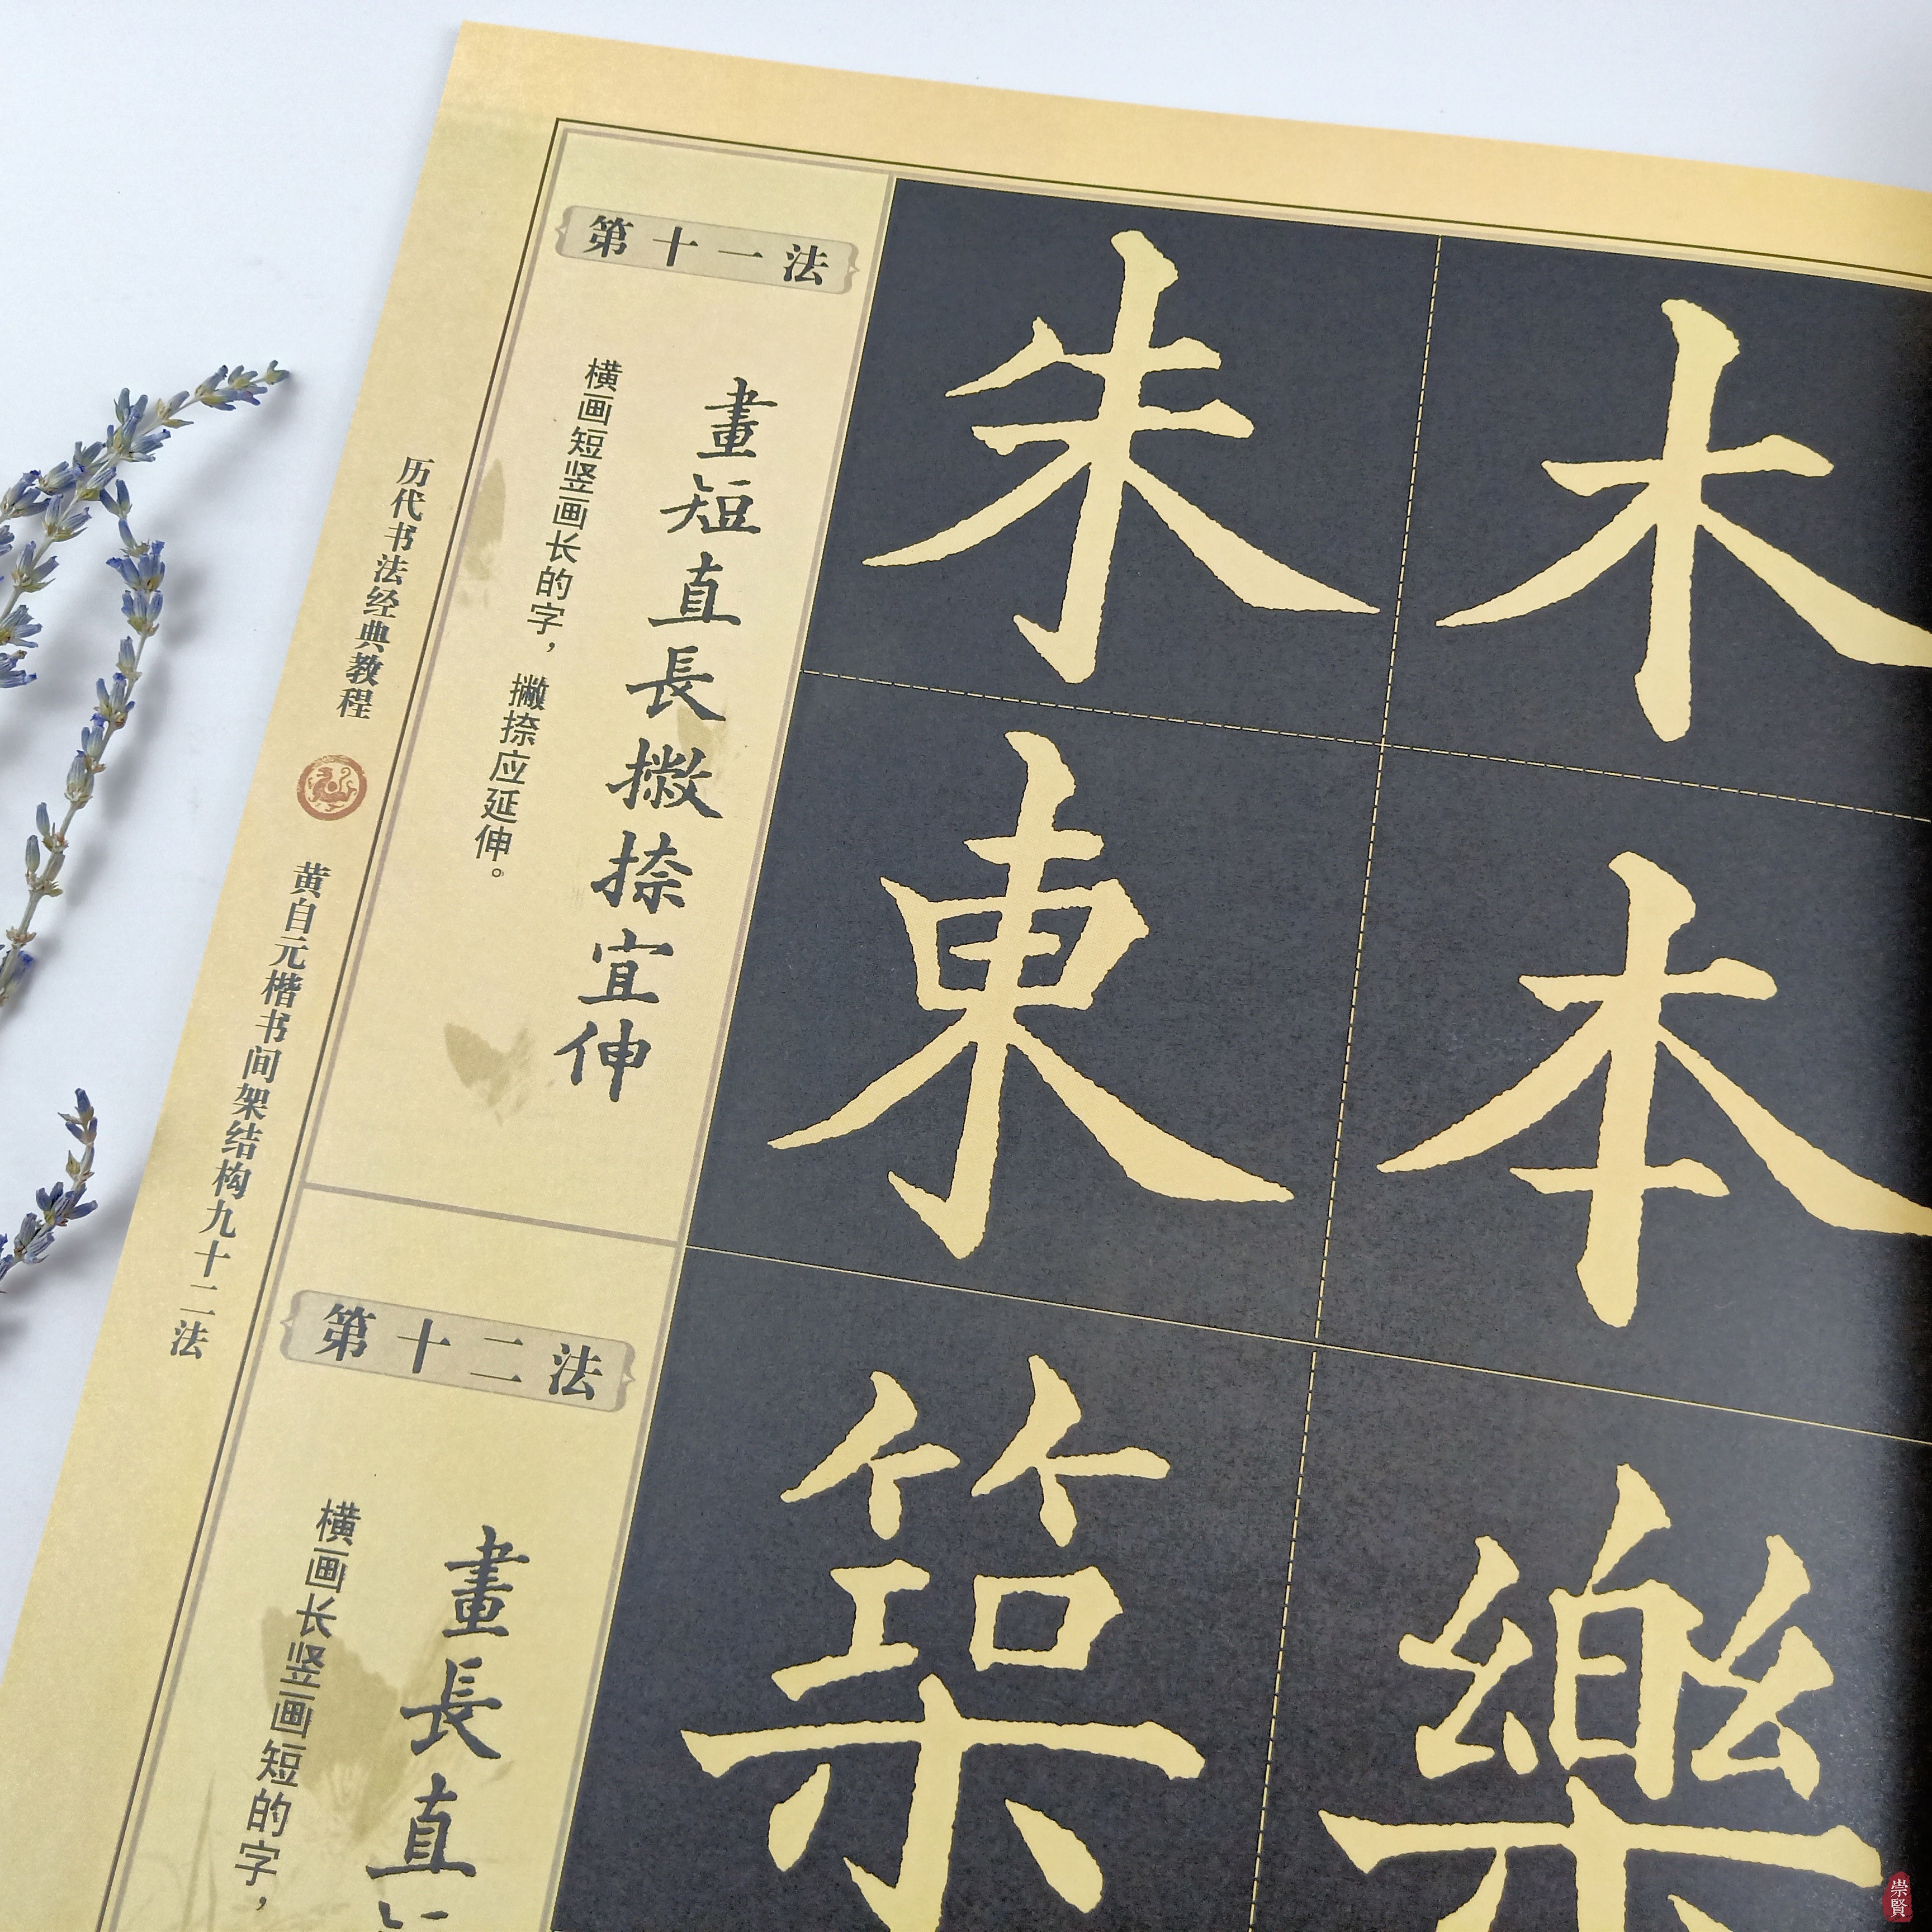 历代书法经典教程
黄自元楷书间架结构九十二法
第十一法
畫短直長撇捺宜伸
横画短竖画长的字，撇捺应延伸。
木
本
朱
東
第十二法
畫長直
横画长竖画短的字，
樂
築
崇賢